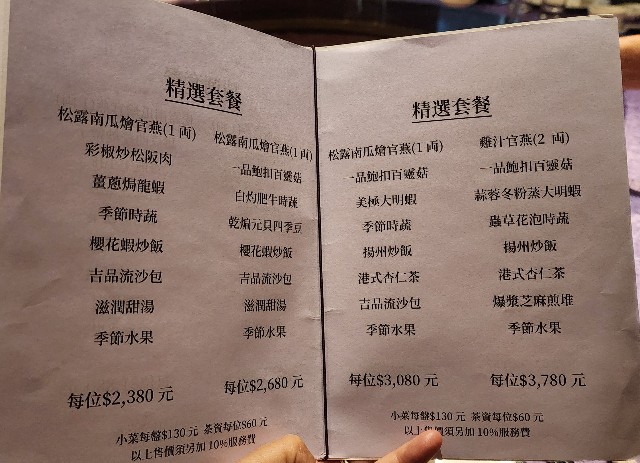 精選套餐
松露南瓜燴官燕(1 両)
彩椒炒松阪肉
薑蔥焗龍蝦
季節時蔬
櫻花蝦炒飯
吉品流沙包
滋潤甜湯
季節水果
每位$2,380 元
松露南瓜燴官燕(1 両)
一品鮑扣百靈菇
白灼肥牛時蔬
乾煸元貝四季豆
櫻花蝦炒飯
吉品流沙包
滋潤甜湯
季節水果
每位$2,680 元
小菜每盤$130 元 茶資每位$60 元
以上售價須另加 10%服務費
精選套餐
松露南瓜燴官燕(1 両)
一品鮑扣百靈菇
美極大明蝦
季節時蔬
揚州炒飯
港式杏仁茶
吉品流沙包
季節水果
每位$3,080 元
雞汁官燕(2 両)
一品鮑扣百靈菇
蒜蓉冬粉蒸大明蝦
蟲草花泡時蔬
揚州炒飯
港式杏仁茶
爆漿芝麻煎堆
季節水果
每位$3,780 元
小菜每盤$130 元 茶資每位$60 元
以上售價須另加 10%服務費